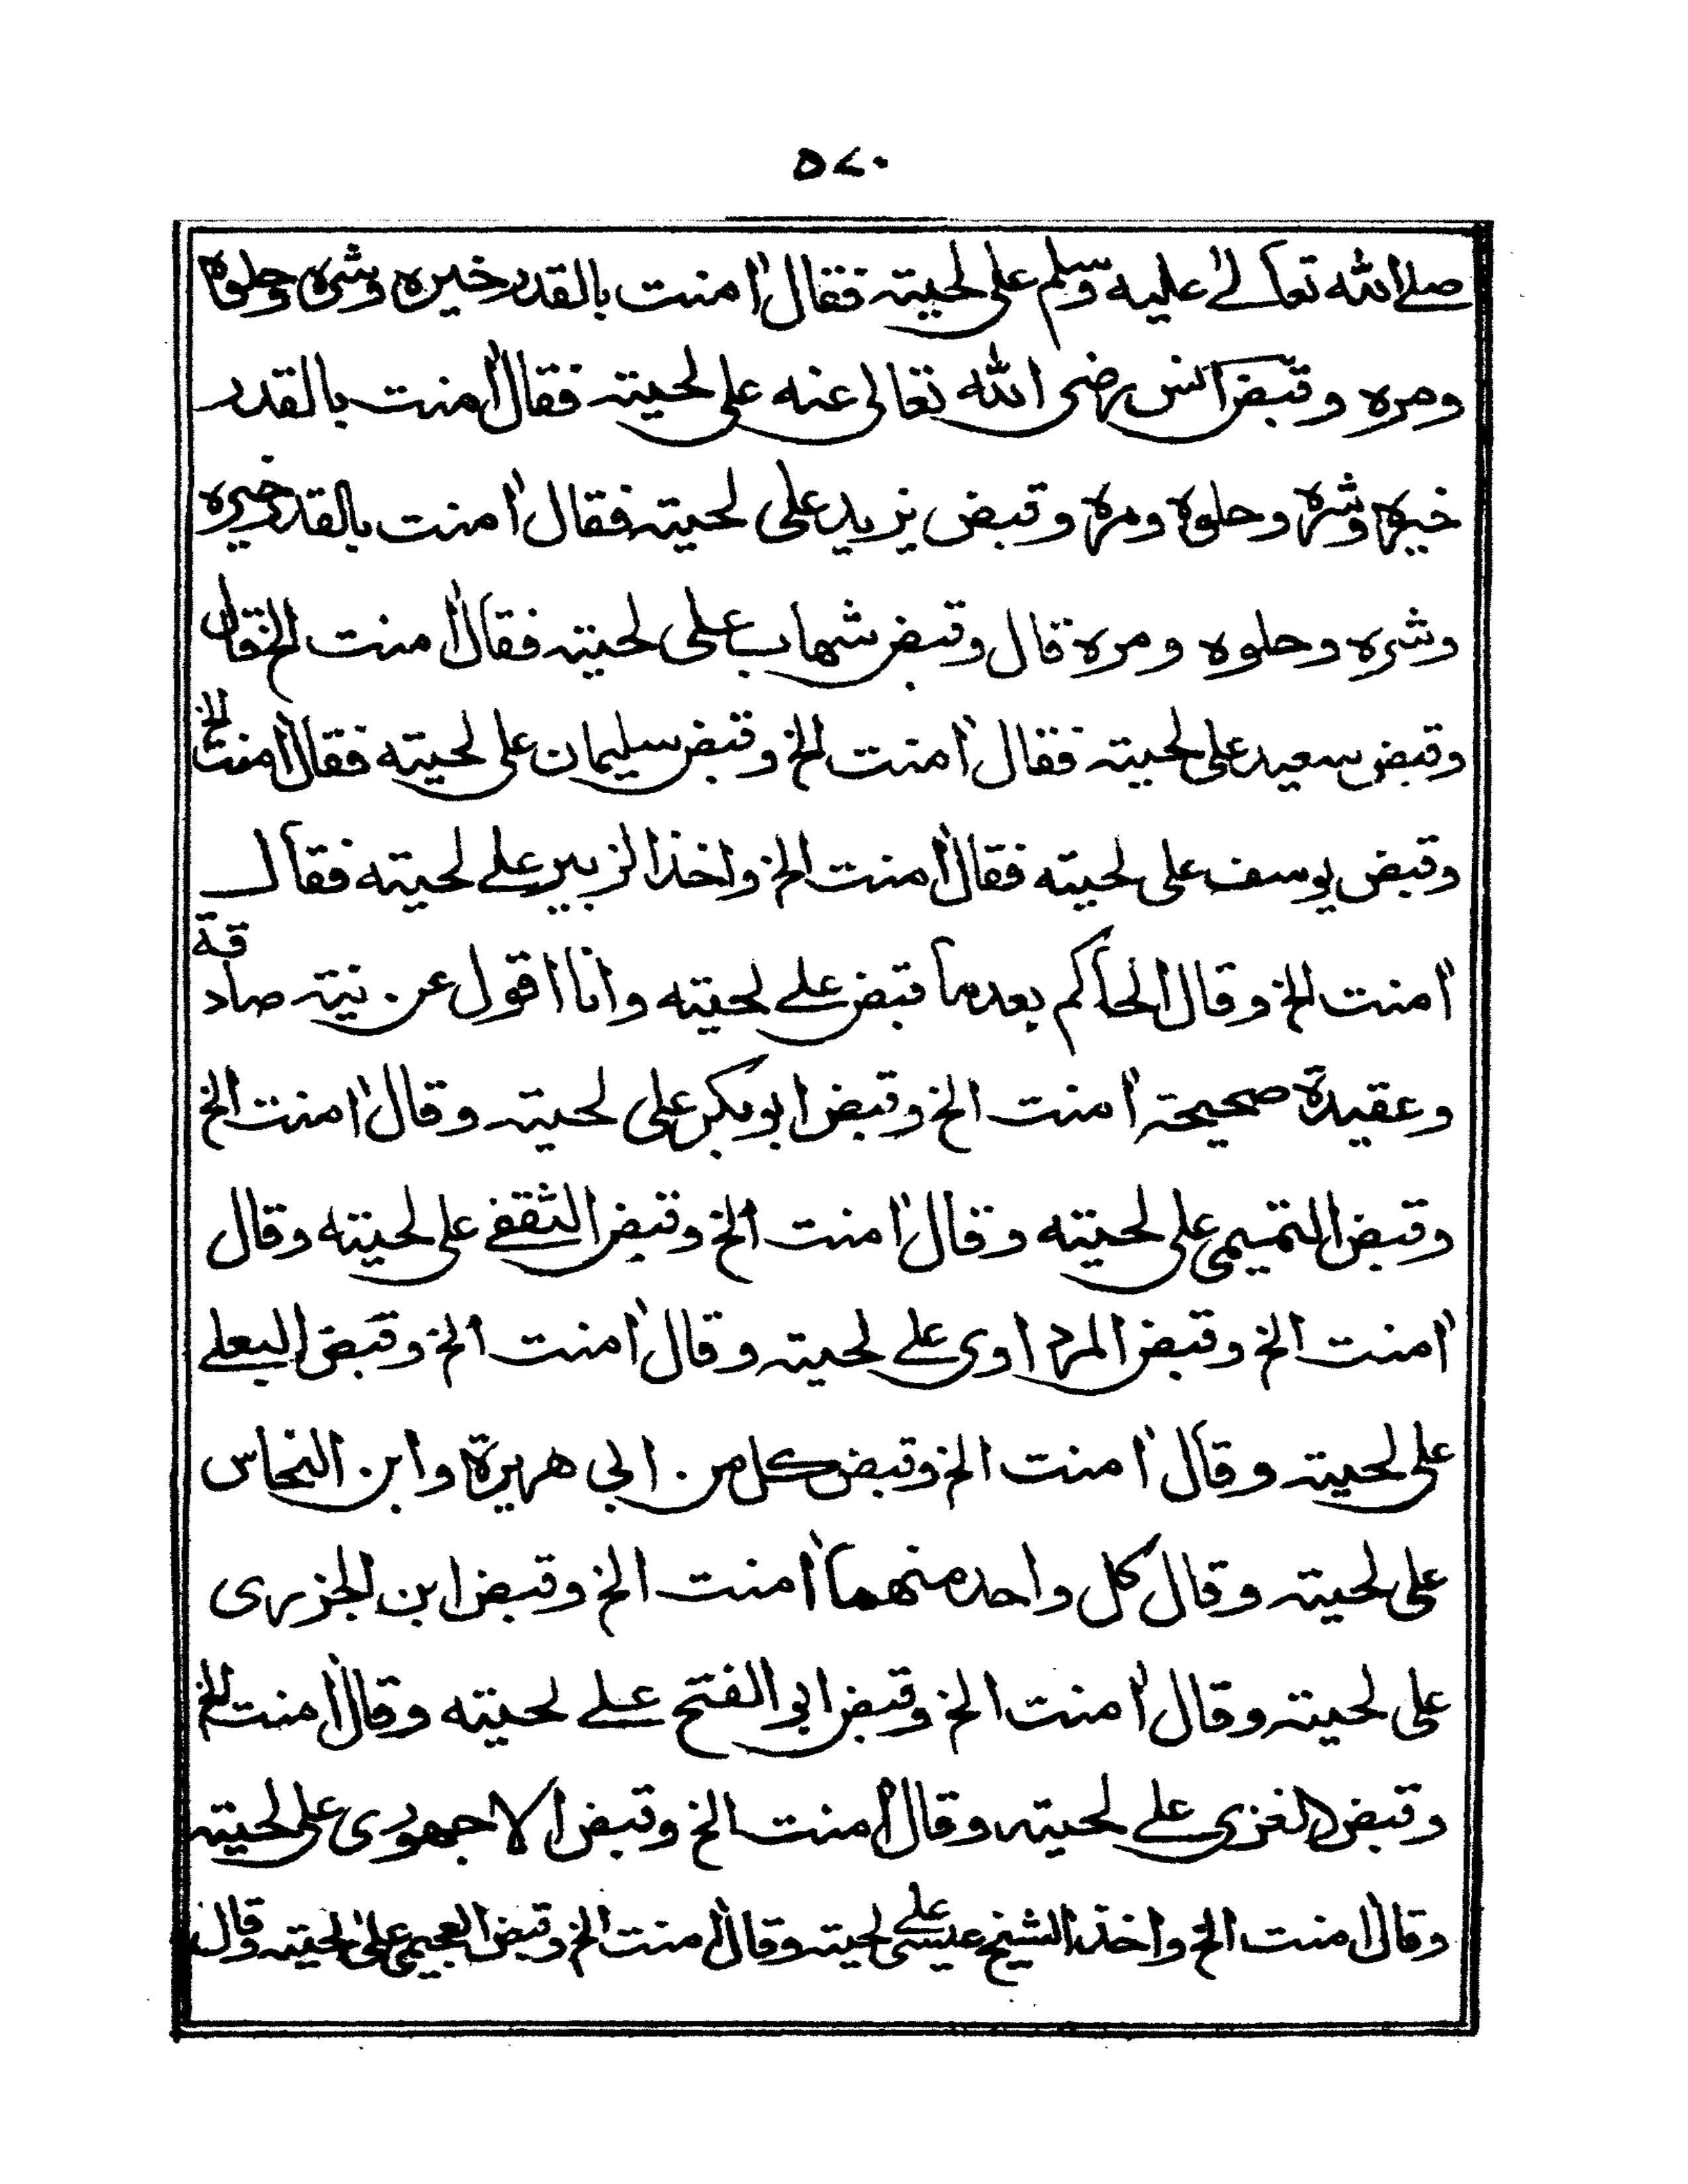 ٥٧٠
صلے الله تعالےٰ عليه وسلم على لحيته فقال اٰمنت بالقدر خيره وشره وحلوه
ومره وقبض انس رضى الله تعالى عنه على لحيته فقال اٰمنت بالقدر
خيره وشره وحلوه ومره وقبض يزيد على لحيته فقال اٰمنت بالقدر خيره
وشره وحلوه ومره قال وقبض شهاب على لحيته فقال اٰمنت الخ قال
وقبض سعيد على لحيته فقال اٰمنت الخ وقبض سليمان على لحيته فقال اٰمنت الخ
وقبض يوسف على لحيته فقال اٰمنت الخ واخذ الزبير علے لحيته فقال
اٰمنت الخ وقال الحاكم بعد ما قبض علے لحيته وانا اقول عن نية صادقة
وعقيدة صحيحة اٰمنت الخ وقبض ابو بكر على لحيته وقال اٰمنت الخ
وقبض التميمى على لحيته وقال اٰمنت الخ وقبض الثقفے على لحيته وقال
اٰمنت الخ وقبض المرداوى علے لحيته وقال اٰمنت الخ وقبض البعلے
على لحيته وقال اٰمنت الخ وقبض كل من ابى هريرة وابن النحاس
على لحيته وقال كل واحد منهما اٰمنت الخ وقبض ابن الجزرى
على لحيته وقال اٰمنت الخ وقبض ابو الفتح علے لحيته وقال اٰمنت الخ
وقبض الغزى علے لحيته وقال اٰمنت الخ وقبض الاجهورى على لحيته
وقال اٰمنت الخ واخذ الشيخ عيسى علے لحيته وقال اٰمنت الخ وقبض العجيمى على لحيته وقال